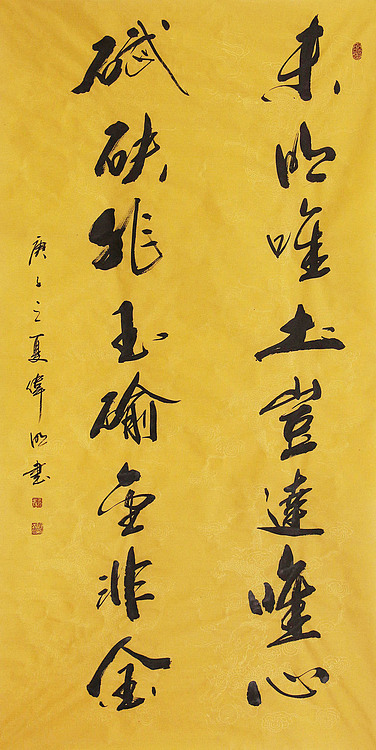 未明唯土豈達唯心
碔砆非玉金非金
庚子之夏偉明書